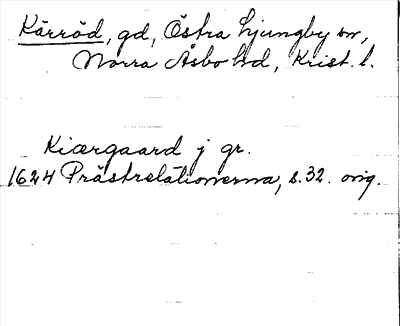 Kärröd, gd, Östra Ljungby sn,
Norra Åsbo hd, Krist. l.
Kiærgaard j gr.
1624 Prästrelationerna, s. 32. orig.